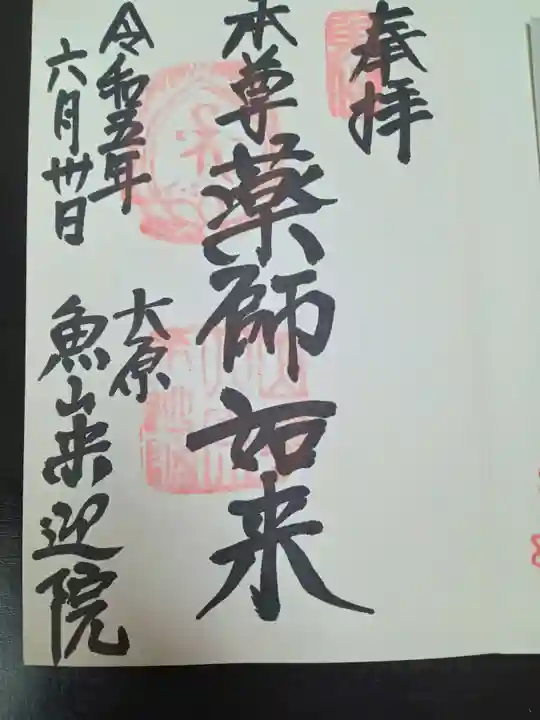 奉拝
本尊薬師如来
令和五年
六月卅日
大原
魚山来迎院